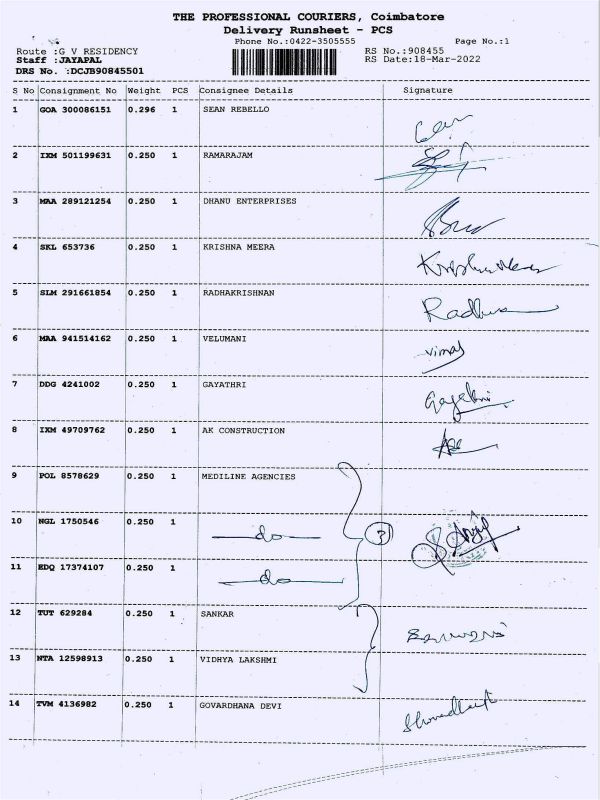 THE PROFESSIONAL COURIERS, Coimbatore
Delivery Runsheet - PCS
Phone No.:0422-3505555 Page No.:1
Route :G V RESIDENCY RS No.:908455
Staff :JAYAPAL RS Date:18-Mar-2022
DRS No. :DCJB90845501
S No Consignment No Weight PCS Consignee Details Signature
1 GOA 300086151 0.296 1 SEAN REBELLO
2 IXM 501199631 0.250 1 RAMARAJAM
3 MAA 289121254 0.250 1 DHANU ENTERPRISES
4 SKL 653736 0.250 1 KRISHNA MEERA
5 SLM 291661854 0.250 1 RADHAKRISHNAN
6 MAA 941514162 0.250 1 VELUMANI vimal
7 DDG 4241002 0.250 1 GAYATHRI
8 IXM 49709762 0.250 1 AK CONSTRUCTION
9 POL 8578629 0.250 1 MEDILINE AGENCIES
10 NGL 1750546 0.250 1 do 3
11 EDQ 17374107 0.250 1 do
12 TUT 629284 0.250 1 SANKAR
13 NTA 12598913 0.250 1 VIDHYA LAKSHMI
14 TVM 4136982 0.250 1 GOVARDHANA DEVI